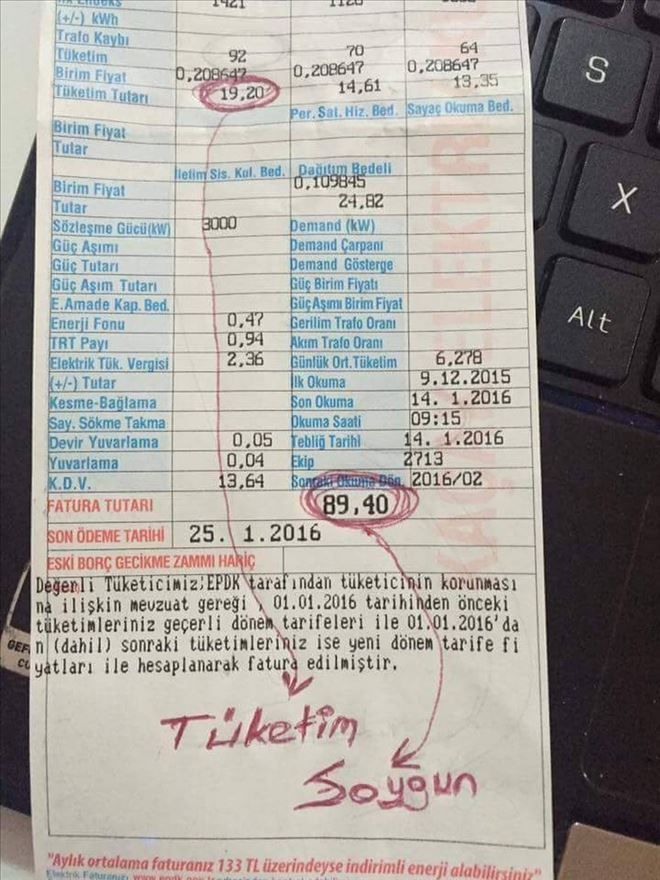 1421 1120
(+/-) kWh
Trafo Kaybı
Tüketim 92 70 64
Birim Fiyat 0,208647 0,208647 0,208647
Tüketim Tutarı 19,20 14,61 13,35
Per. Sat. Hiz. Bed. Sayaç Okuma Bed.
Birim Fiyat
Tutar
İletim Sis. Kul. Bed. Dağıtım Bedeli
Birim Fiyat 0,109845
Tutar 24,82
Sözleşme Gücü(kW) 3000 Demand (kW)
Güç Aşımı Demand Çarpanı
Güç Tutarı Demand Gösterge
Güç Aşım Tutarı Güç Birim Fiyatı
E.Amade Kap. Bed. Güç Aşımı Birim Fiyat
Enerji Fonu 0,47 Gerilim Trafo Oranı
TRT Payı 0,94 Akım Trafo Oranı
Elektrik Tük. Vergisi 2,36 Günlük Ort.Tüketim 6,278
(+/-) Tutar İlk Okuma 9.12.2015
Kesme-Bağlama Son Okuma 14. 1.2016
Say. Sökme Takma Okuma Saati 09:15
Devir Yuvarlama 0,05 Tebliğ Tarihi 14. 1.2016
Yuvarlama 0,04 Ekip 2713
K.D.V. 13,64 Sonraki Okuma Dön. 2016/02
FATURA TUTARI 89,40
SON ÖDEME TARİHİ 25. 1.2016
ESKİ BORÇ GECİKME ZAMMI HARİÇ
Değerli Tüketicimiz;EPDK tarafından tüketicinin korunması
na ilişkin mevzuat gereği , 01.01.2016 tarihinden önceki
tüketimleriniz geçerli dönem tarifeleri ile 01.01.2016'da
n (dahil) sonraki tüketimleriniz ise yeni dönem tarife fi
yatları ile hesaplanarak fatura edilmiştir.
Tüketim
Soygun
"Aylık ortalama faturanız 133 TL üzerindeyse indirimli enerji alabilirsiniz"
S
X
Alt